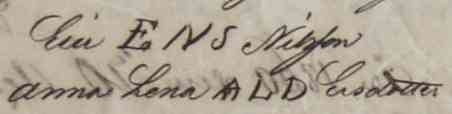 Eric E N S Nilsson
Anna Lena A L D Larsdotter